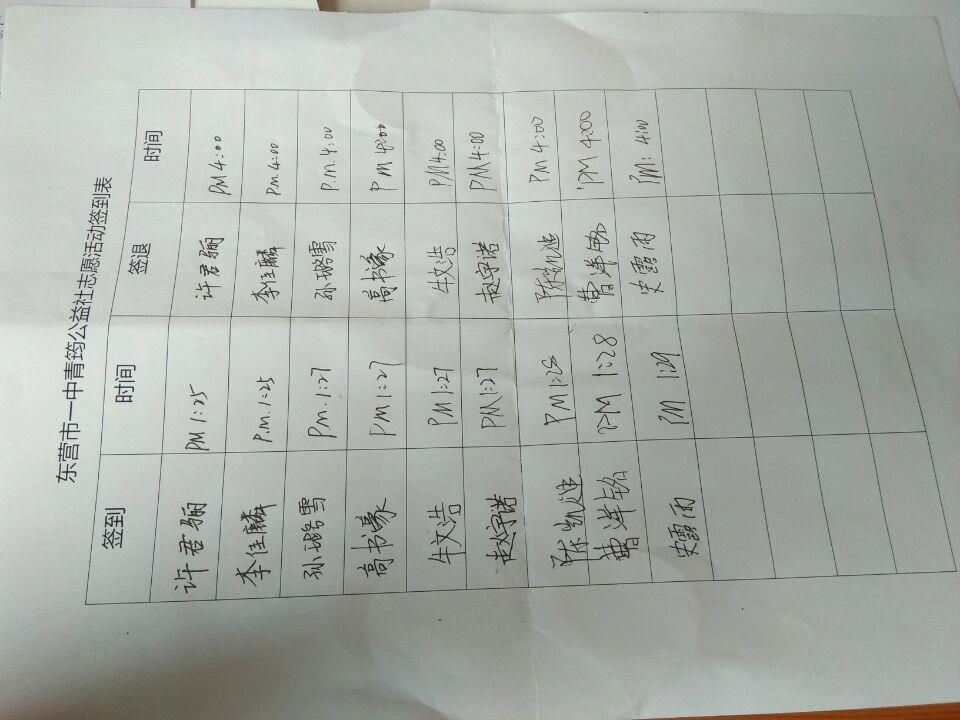 东营市一中青筠公益社志愿活动签到表
签到 时间 签退 时间
许君骊 PM 1:25 许君骊 PM 4:00
李佳麟 P.m. 1:25 李佳麟 P.m. 4:00
孙璐雪 P.m. 1:27 孙璐雪 P.m. 4:00
高书豪 PM 1:27 高书豪 PM 4:00
牛文浩 PM 1:27 牛文浩 PM 4:00
赵宇诺 PM 1:27 赵宇诺 PM 4:00
陈凯迪 PM 1:28 陈凯迪 PM 4:00
曹洋铭 PM 1:28 曹洋铭 PM 4:00
史雪雨 PM 1:29 史雪雨 PM: 4:00